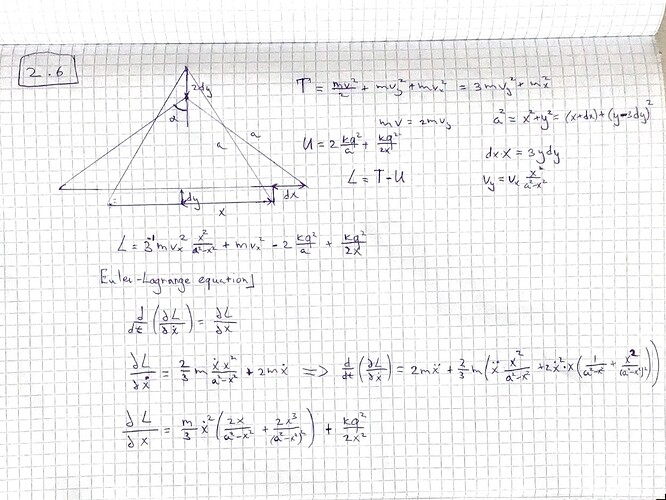 2.6
2dy
α
a
a
dy
x
dx
T = mv²/2 + mv_y² + mv_x² = 3mv_y² + m_x²
mv = 2mv_y
a² = x² + y² = (x+dx) + (y-3dy)²
U = 2 kq²/a + kq²/2x
dx·X = 3ydy
L = T-U
v_y = v_x x²/a²-x²
L = 3⁻¹mv_x² x²/a²-x² + mv_x² - 2 kq²/a + kq²/2x
[Euler-Lagrange equation]
d/dt (∂L/∂ẋ) = ∂L/∂x
∂L/∂ẋ = 2/3 m ẋ·x²/a²-x² + 2mẋ => d/dt (∂L/∂ẋ) = 2mẍ + 2/3 m (ẍ x²/a²-x² + 2ẋ²·x (1/a²-x² + x²/(a²-x²)²))
∂L/∂x = m/3 ẋ² (2x/a²-x² + 2x³/(a²-x²)²) + kq²/2x²